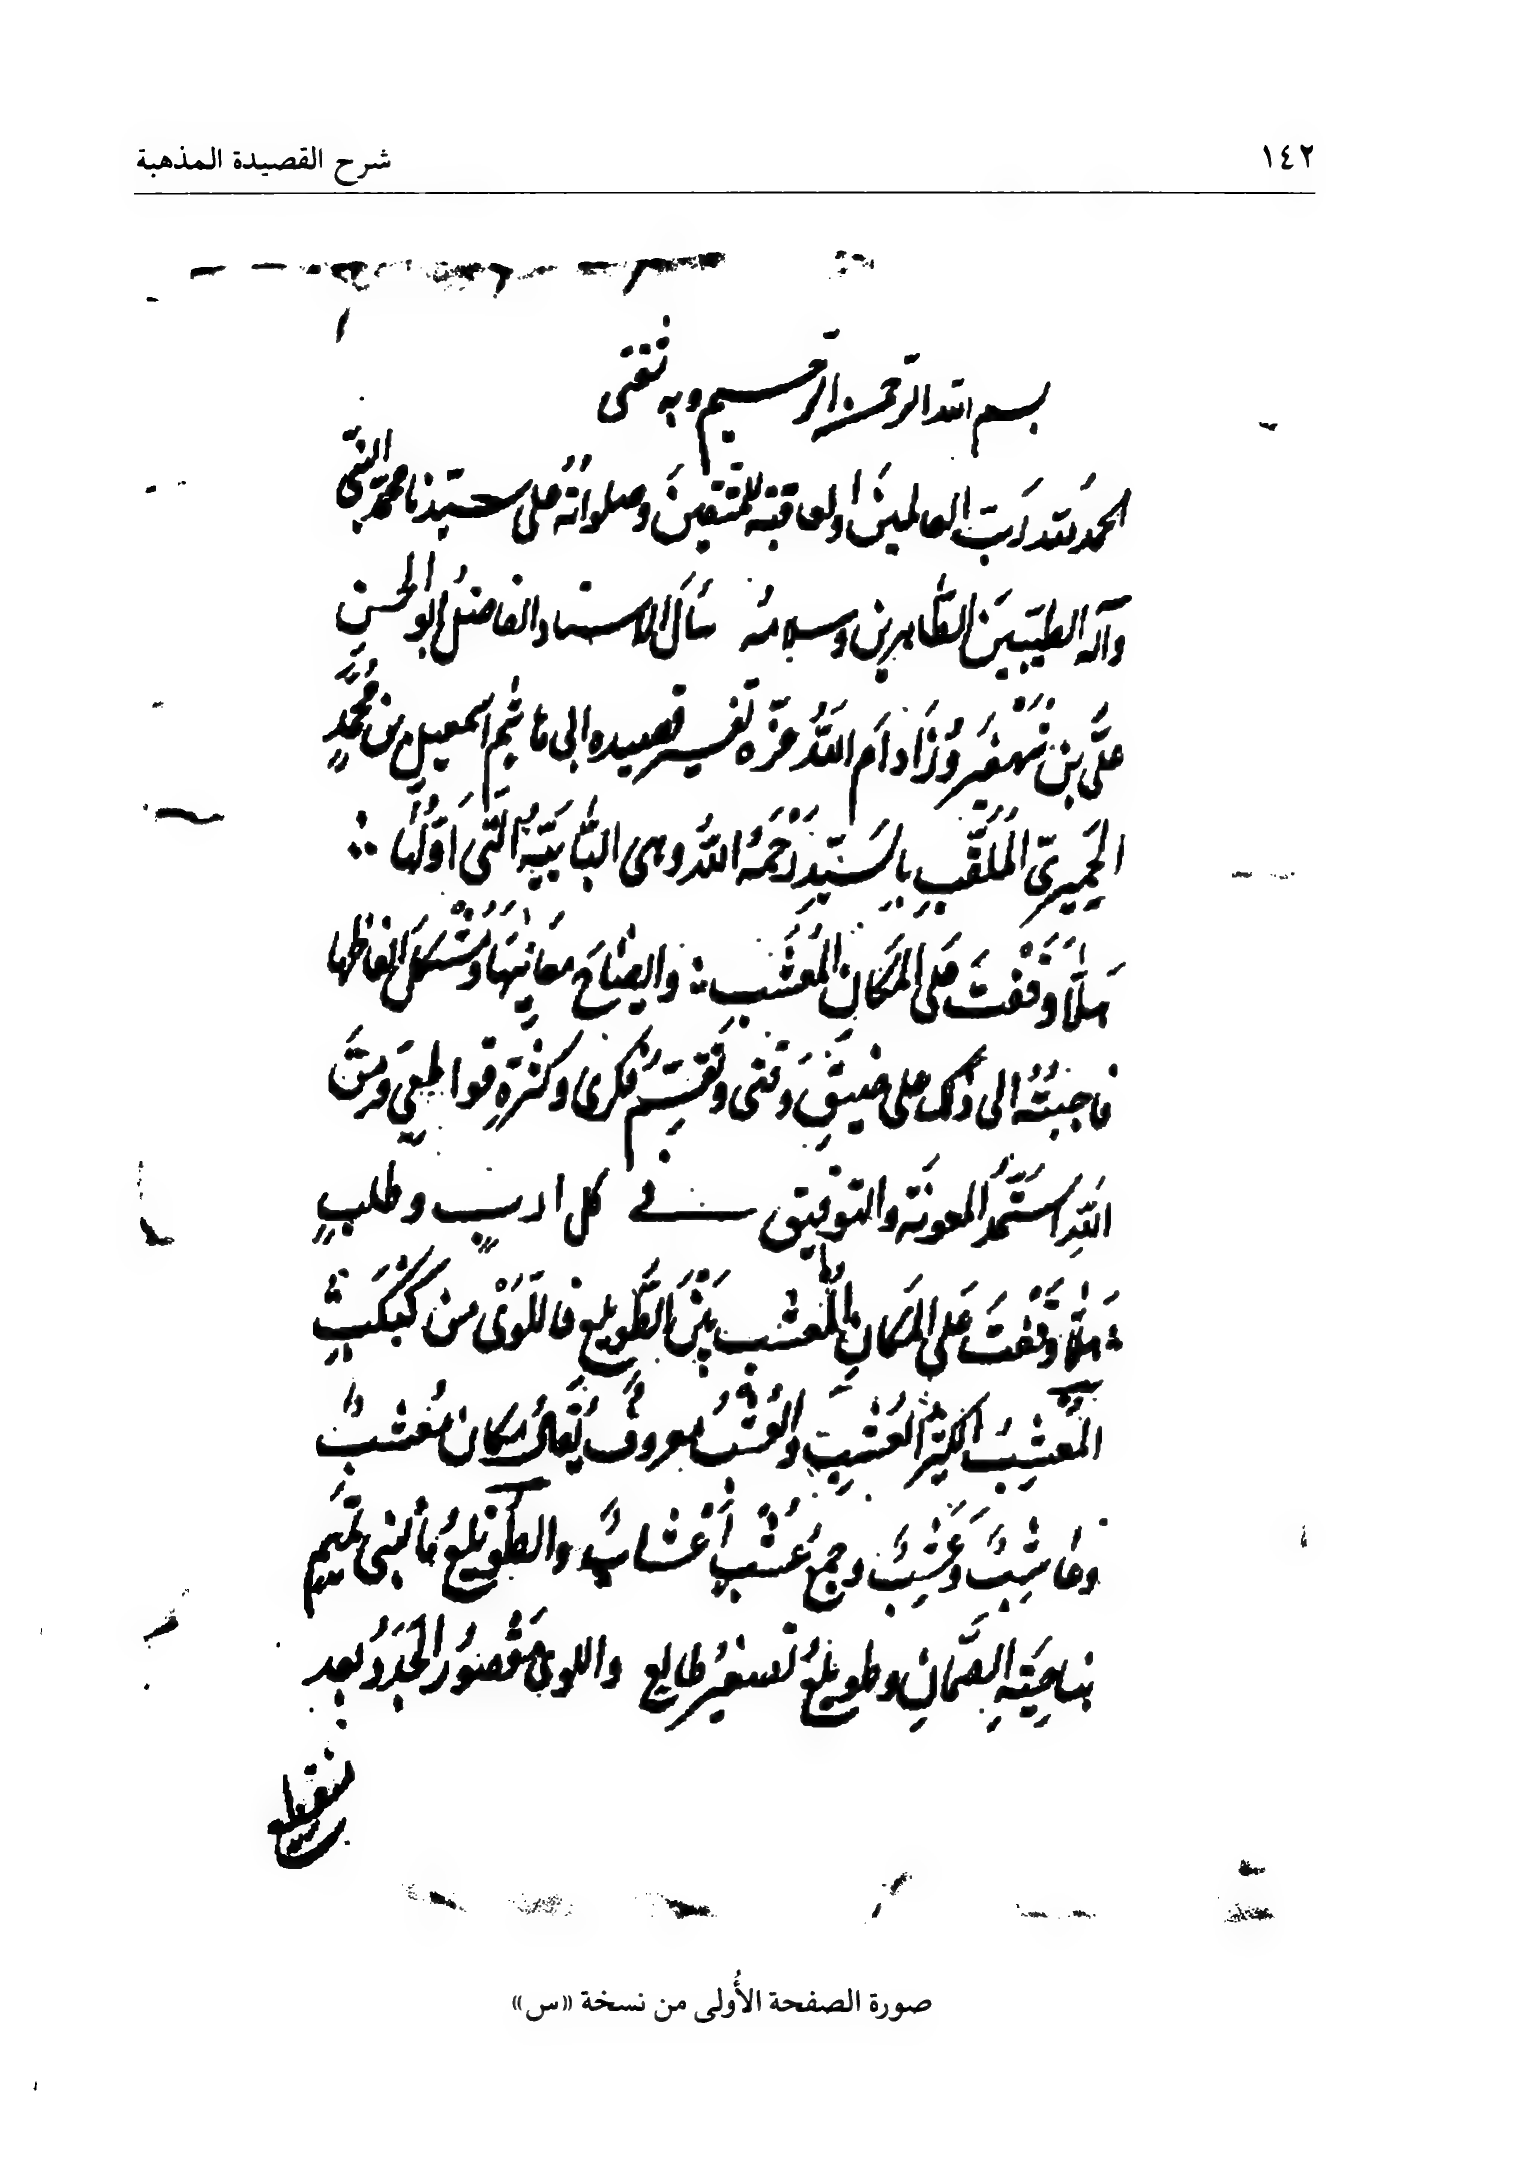 ١٤٢
شرح القصيدة المذهبة
بسم الله الرحمن الرحيم وبه ثقتى
الحمد لله رب العالمين والعاقبة للمتقين وصلواته على سيدنا محمد النبى
وآله الطيبين الطاهرين وسلامه سَأَل الاستاد الفاضل ابو الحسن
على بن شَهْفَيْرُوزَ ادَام اللَّه عزّه تفسير قصيده ابى هاشم اسمعيل بن محمدٍ
الحِمْيَرِىّ المُلَقَّبِ بالسَّيّد رَحْمَهُ اللهُ وهى البَّابيّهُ الّتى اَوّلُها
هلَّا وَقَفْتَ على المَكَانِ المُعْشِبِ وايضاحَ معانيها ومُشْكل الفاظها
فاجبتُهُ الى ذلك على ضيقِ وقتى وتقسّم فكرى وكثرةِ قواطعى ومن
اللهِ استَمدُّ المعونة والتوفيق فى كل ادبٍ وطلبٍ
هلَّا وَقَفْتَ على المَكانِ المُعْشِبِ بَيْنَ الطُّوَيلِعِ فاللِّوَىْ من كَبْكَبِ
المُعْشِبُ الكثير العُشْبِ والعُشْبُ معروفٌ يُقالُ مكان مُعْشبٌ
وعَاشِبٌ وعَشِبٌ وجمعُ عُشْبٍ أَعْشابٌ والطُّوَيْلعُ ماٌ لبنى تميمٍ
بناحِيَةِ الصَّمّانِ وطُويلعُ تصغيرُ طالع واللوى مَقْصُورُ الجَدَدُ بعد
صورة الصفحة الأُولى من نسخة «س»